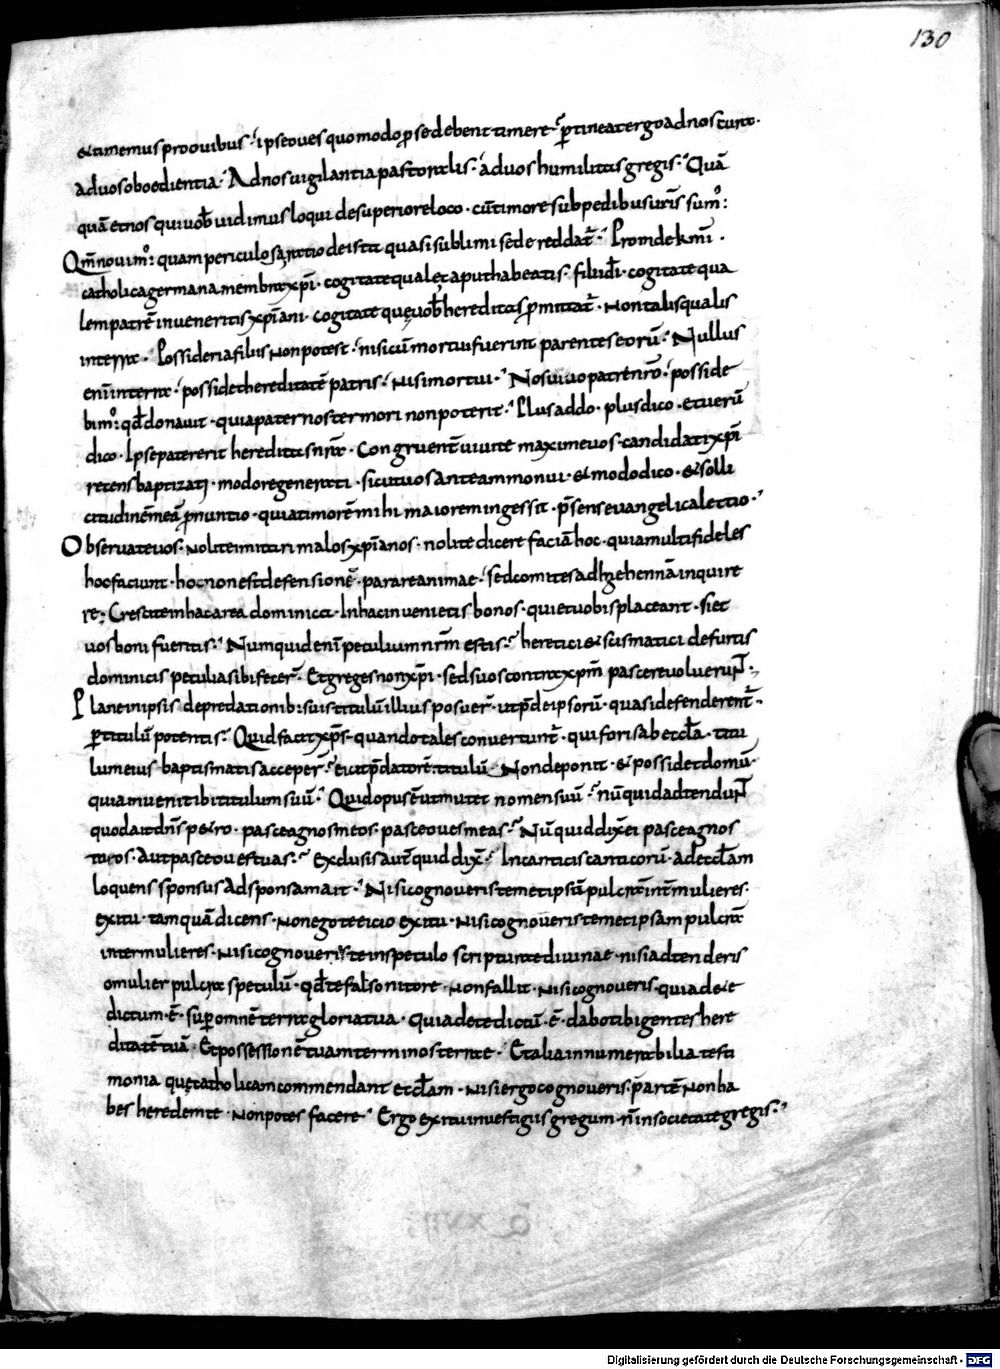 130
& timemus pro ouibus · ipse oues quomodo p se debent timere · ptineat ergo ad nos cura ·
ad uos oboedientia · Ad nos uigilantia pastoralis · ad uos humilitas gregis · Quā
quā et nos qui uob uidimus loqui de superiore loco · cū timore sub pedibus uris sum' :
Qm̄ nouim' : quam periculosa ratio de ista quasi sublimi sede reddat̄ · Proinde kmi ·
catholica germana membra xp̄i · cogitate quale caput habeatis · filii di · cogitate qua
lem patrē inueneritis xp̄iani · cogitate quę uob hereditas pmittat̄ · Non talis qualis
in terra · Possideri a filiis non potest · nisi cum mortui fuerint parentes eorū · Nullus
enī in terra · possidet hereditatē patris · nisi mortui · Nos uiuo patre nrō · posside
bim' : qđ donauit · quia pater noster mori non poterit · Plus addo · plus dico · et uerū
dico · Ipse pater erit hereditas nrā · Congruent̄ uiuite maxime uos · candidati xp̄i
recens baptizati · modo regenerati · sicut uos ante ammonui · & modo dico · & solli
citudinē meā pnuntio · quia timorē mihi maiorem ingessit · p̄sens euangelica lectio ·
Obseruate uos · nolite imitari malos xp̄ianos · nolite dicere faciā hoc · quia multi fideles
hoc faciunt · hoc non est defensionē · parare animae · sed comites ad gehennā inquire
re ; Crescite in hac area dominica · In hac inuenietis bonos · qui et uobis placeant · si et
uos boni fueritis · Numquid enī peculium nrm̄ estis · heretici & scismatici de furtis
dominicis peculia sibi fecer̄ · Et greges non xp̄i · sed suos contra xp̄m pascere uoluerunt ·
Plane in ipsis depredationib : suis titulū illius posuer̄ · ut pde ipsorū · quasi defenderent̄ ·
p titulū potentis · Quid facit xp̄s · quando tales conuertunt̄ · qui foris ab eccl̄a · titu
lum eius baptismatis acceper̄ · eicit pdatorē titulū Non deponit · & possidet domū ·
quia inuenit ibi titulum suū · Quid opus ē ut mutet nomen suū · nūquid adtendunt
quod ait dn̄s petro · pasce agnos meos · pasce oues meas · Nūquid dix̄ ei pasce agnos
tuos · aut pasce oues tuas · Exclusis aut̄ quid dix̄ · In canticis canticorū · ad eccl̄am
loquens sponsus ad sponsam ait · Nisi cognoueris temetipsā pulcra int̄ mulieres ·
exi tu · tamquā dicens · non ego te eicio exi tu · nisi cognoueris temetipsam pulcra
inter mulieres · nisi cognoueris te in speculo scripturae diuinae · nisi adtenderis
o mulier pulcra speculū · qđ te falso nitore · non fallit · nisi cognoueris · quia de te
dictum · ē · sup omnē terrā gloria tua · Quia de te dictū · ē · dabo tibi gentes here
ditatē tuā · Et possessionē tuam terminos terrae · Et alia innumerabilia testi
monia quę catholicam commendant eccl̄am · nisi ergo cognoueris · partē non ha
bes heredem te · non potes facere · Ergo exi tu in uestigiis gregum · n̄ in societate gregis ·
Digitalisierung gefördert durch die Deutsche Forschungsgemeinschaft - DFG